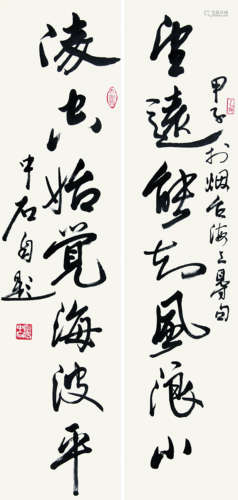 望遠能知風浪小
甲子於烟台海上得句
凌空始覺海波平
中石自題